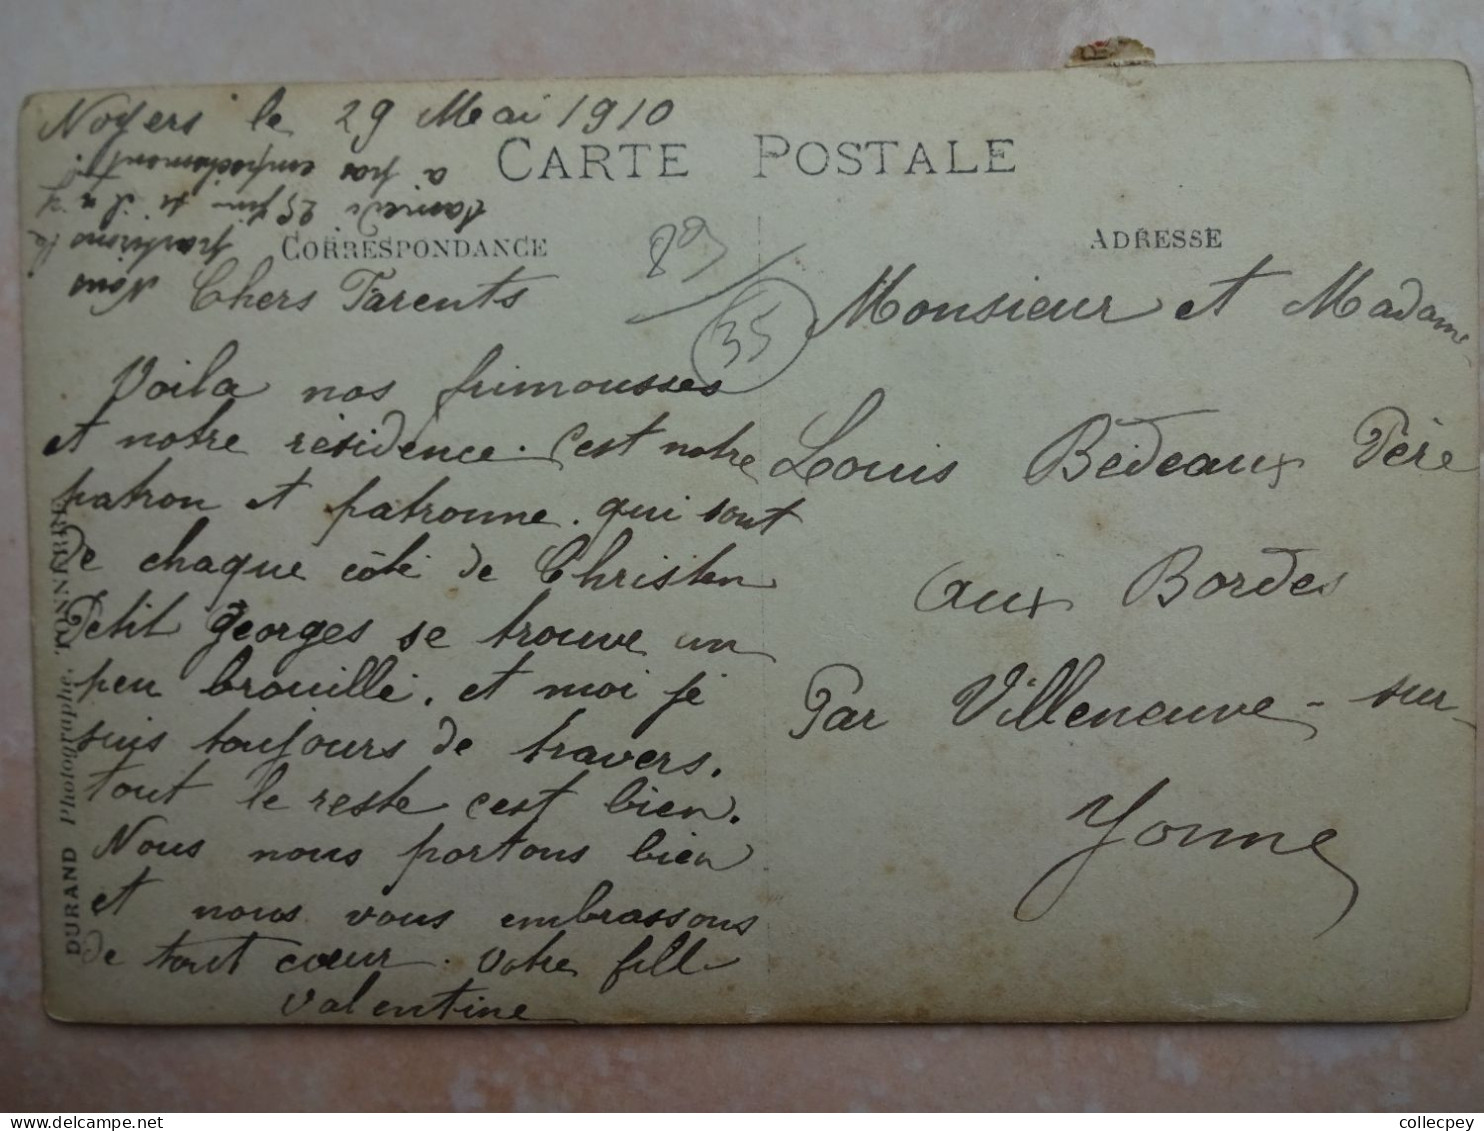 Noyers le 29 Mai 1910
CARTE POSTALE
Nous partirons le
samedi 25 juin s'il n'y
a pas empêchement.
CORRESPONDANCE
ADRESSE
89
35
Chers Parents
Voila nos frimousses
et notre résidence. C'est notre
patron et patronne. qui sont
de chaque côté de Christen
Petit georges se trouve un
peu brouillé. et moi je
suis toujours de travers.
tout le reste c'est bien.
Nous nous portons bien
et nous vous embrassons
de tout cœur. Votre fille
Valentine
Monsieur et Madame
Louis Bedeaux Père
aux Bordes
Par Villeneuve-sur-
Yonne
DURAND Photographe. TONNERRE
collecpey